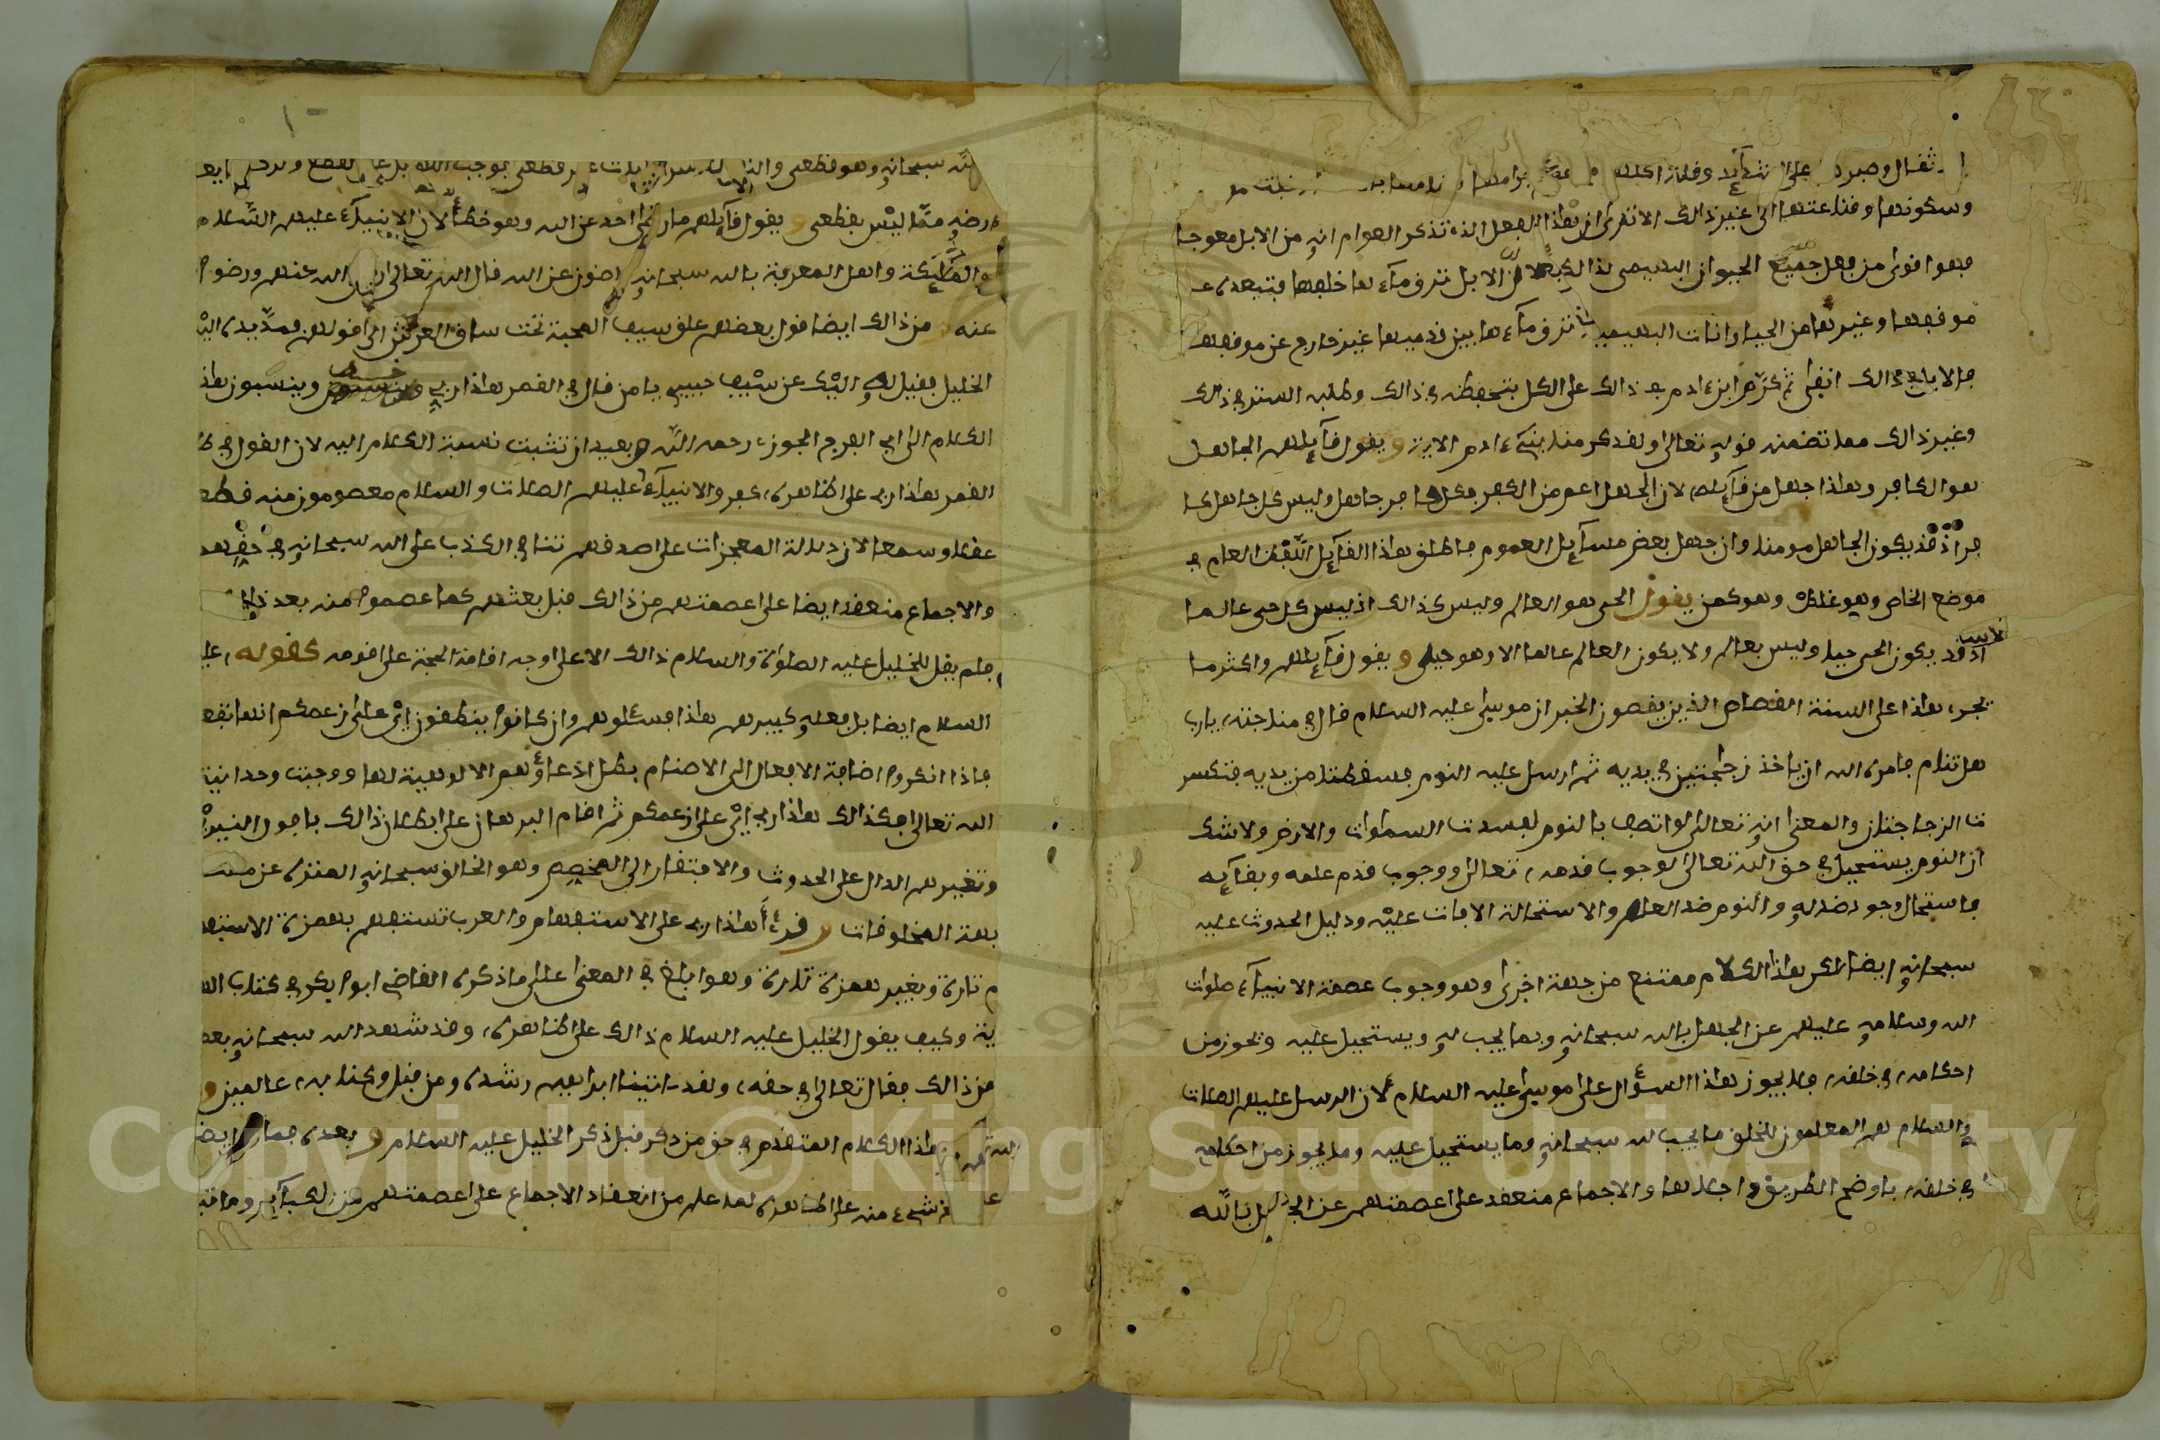 وسكونها وقناعتها الى غير ذالك الا ترى ان هذا الفعل الذي تذكر العوام انه من الابل معوجا
فهو اقوى من فعل جميع الحيوان البهيمي لذالك لان الابل تنزو ماءها خلفها فتبعده عـ
موقفها وغيرها من الحيوانات البهيمية تنزو ماءها بين قدميها غير خارج عن موقفها
ذالك انقى ثم كرم ابن ءادم بعد ذالك على الكل بتحفظه في ذالك وطلبه الستر في ذالك
وغير ذالك مما تضمنه قوله تعالى ولقد كرمنا بني ءادم الاية ويقول قايلهم الجاهل
هو الكافر وهذا جهل من قايله لان الجهل اعم من الكفر فكل كافر جاهل وليس كل جاهل كا
فرا اذ قد يكون الجاهل مومنا وان جهل بعض مسايل العموم فاطلق هذا القايل اللفظ العام في
موضع الخاص وهو غلط وهو كمن يقول الحي هو العالم وليس كذالك اذ ليس كل حي عالما
اذ قد يكون الحي حيا وليس بعالم ولا يكون العالم عالما الا وهو حي ويقول قايلهم واكثر ما
يجرى هذا على السنة القصاص الذين يقصون الخبر ان موسى عليه السلام قال في مناجته يارب
هل تنام فامره الله ان ياخذ زجاجتين في يديه ثم ارسل عليه النوم فسقطتا من يديه فتكسر
ت الزجاجتان والمعنى انه تعالى لو اتصف بالنوم لفسدت السموات والارض ولا شك
ان النوم يستحيل في حق الله تعالى لوجوب قدمه تعالى ووجوب قدم علمه وبقايه
فاستحال وجود ضده والنوم ضد العلم والاستحالة الافات عليه ودليل الحدوث عليه
سبحانه ايضا لكن هذا الكلام ممتنع من جهة اخرى وهو وجوب عصمة الانبياء صلوات
الله وسلامه عليهم عن الجهل بالله سبحانه وبما يجب له ويستحيل عليه وتجوز من
احكامه في خلقه فلا يجوز هذا السؤال على موسى عليه السلام لان الرسل عليهم الصلات
والسلام هم المعلمون للخلق ما يجب لله سبحانه وما يستحيل عليه وما يجوز من احكامه
في خلقه باوضح الطريق واجلاها والاجماع منعقد على عصمتهم عن الجهل بالله
الله سبحانه وهو قطعي
مما ليس بقطعي ويقول قايلهم ما رضى احد عن الله وهو خطأ لان الانبياء عليهم السلام
والمليكة واهل المعرفة بالله سبحانه راضون عن الله قال الله تعالى رضى الله عنهم ورضوا
عنه من ذالك ايضا قول بعضهم علق سيف المحبة تحت ساق العرش الى قولهم
الخليل فقيل له اليك عن سيف حبيبي يا من قال في القمر هذا ربي وينسبون هذا
الكلام الى ابي الفرج الجوزي رحمه الله وبعيد ان تثبت نسبة الكلام اليه لان القول في
القمر هذا ربي على ظاهره كفر والانبياء عليهم الصلات والسلام معصومون منه قطعا
عقلا وسمعا لان دلالة المعجزات على صدقهم تنافي الكذب على الله سبحانه في حقهم
والاجماع منعقد ايضا على عصمتهم من ذالك قبل بعثهم كما عصموا منه بعد
فلم يقل الخليل عليه الصلواة والسلام ذالك الا على وجه اقامة الحجة على قومه كقوله عليه
السلام ايضا بل فعله كبيرهم هذا فسئلوهم ان كانوا ينطقون اي على زعمكم انها تفعل
فاذا انكروا اضافة الافعال الى الاصنام بطل ادعاؤهم الالوهية لها ووجبت وحدانية
الله تعالى فكذالك هذا ربي اي على زعمكم ثم اقام البرهان على ابطال ذالك بافول النير
وتغيرهم الدال على الحدوث والافتقار الى المخصص وهو الخالق سبحانه المنزه عن
بهة المخلوقات وقرئ أهذا ربي على الاستفهام والعرب تستفهم بهمزة الاستفهام
م تارة وبغير همزة تارة وهو ابلغ في المعنى على ما ذكره القاضي ابو بكر في كتاب
ية وكيف يقول الخليل عليه السلام ذالك على ظاهره وقد شهد الله سبحانه
من ذالك فقال تعالى في حقه ولقد ءاتينا ابراهيم رشده من قبل وكنا به عالمين و
هذا الكلام المتقدم في حق من ذكر قبل ذكر الخليل عليه السلام وبعده فما
شيء منه على ظاهره لما علم من انعقاد الاجماع على عصمتهم من الكباير وما
Copyright © King Saud University